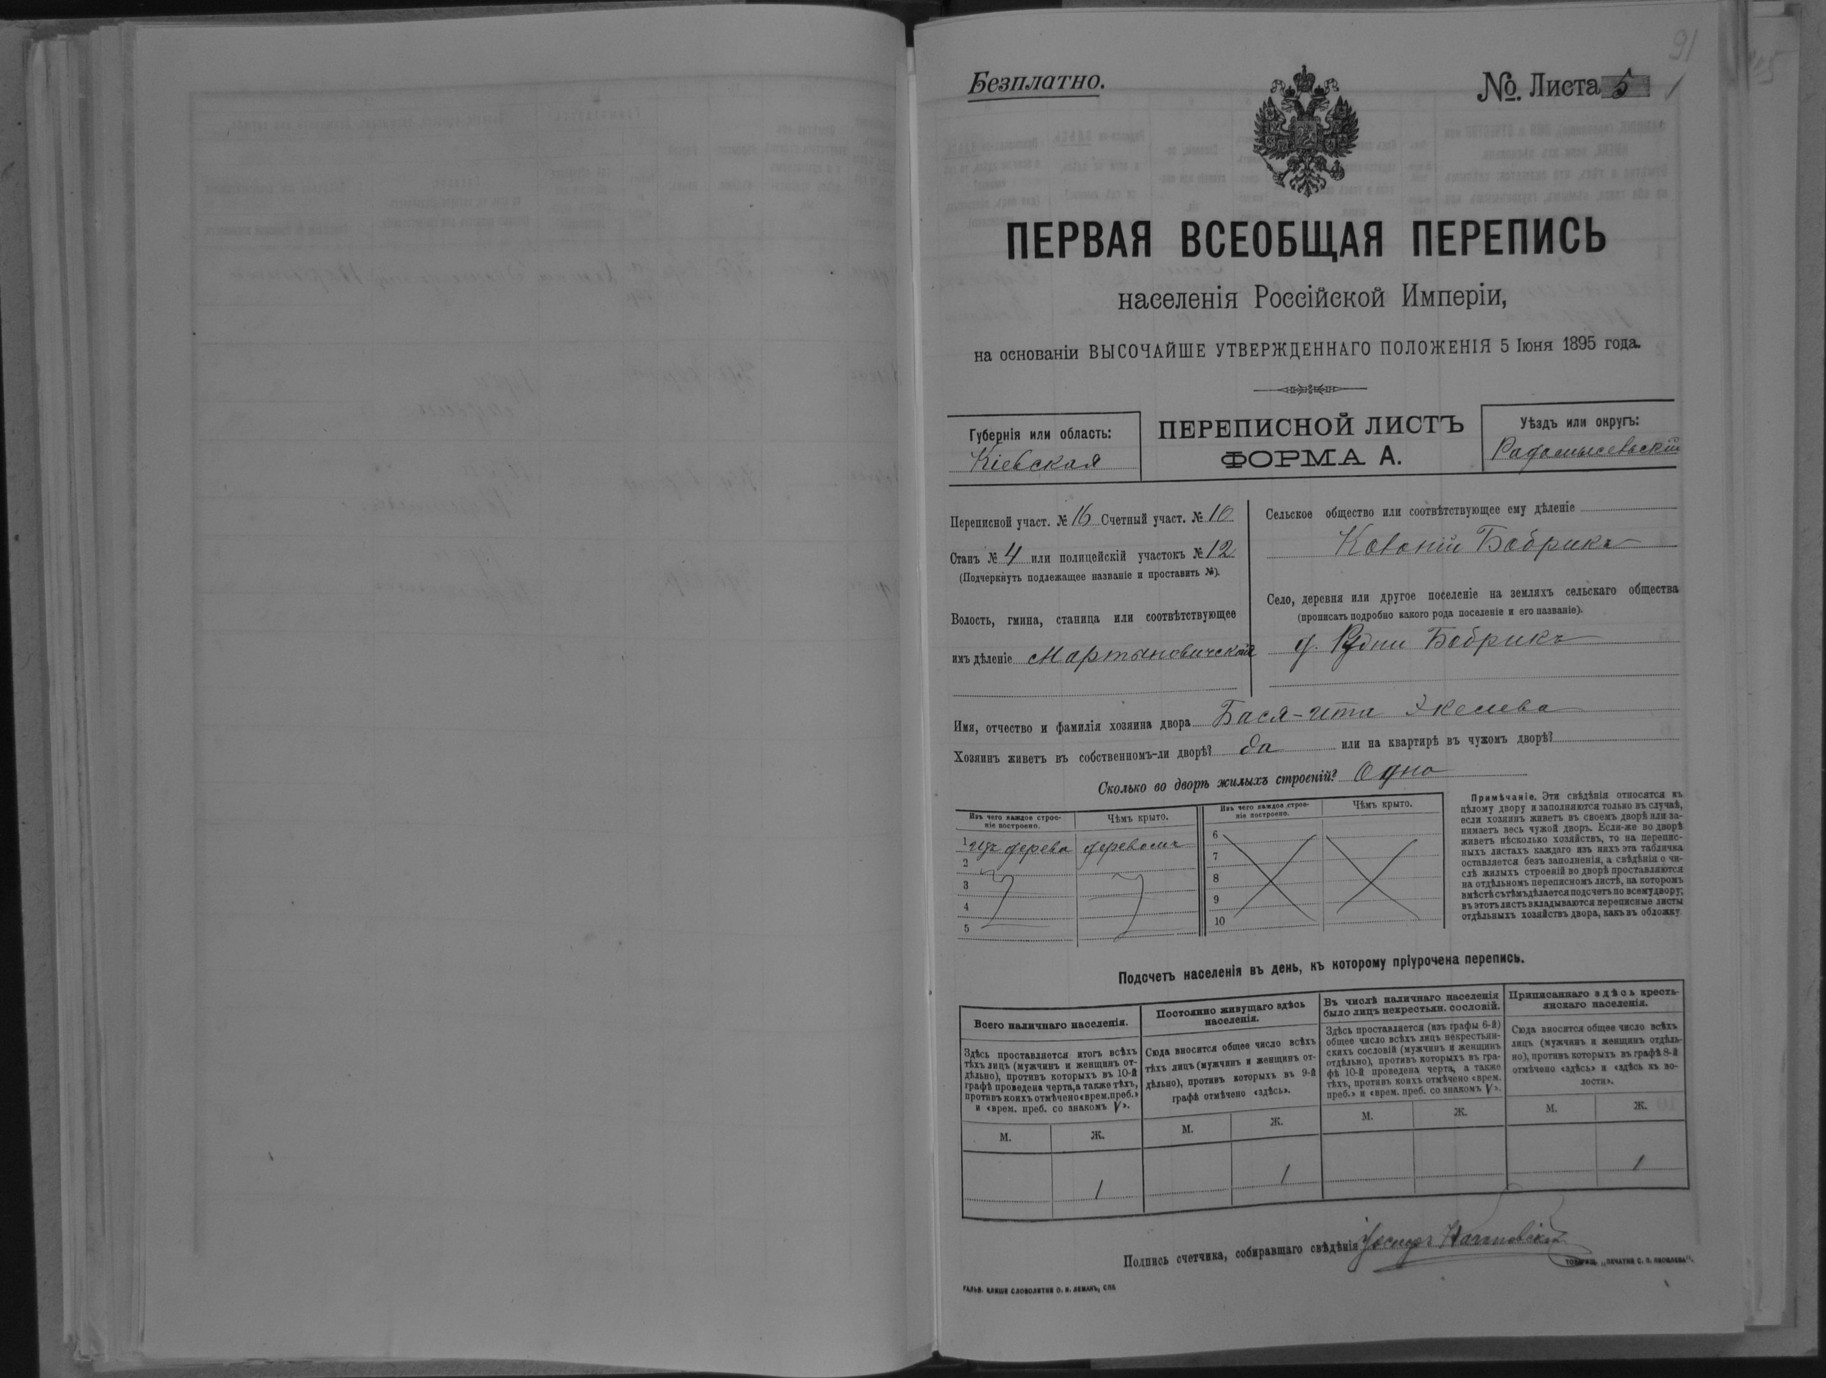 91
Безплатно.
№ Листа 5
ПЕРВАЯ ВСЕОБЩАЯ ПЕРЕПИСЬ
населенія Россійской Имперіи,
на основаніи ВЫСОЧАЙШЕ УТВЕРЖДЕННАГО ПОЛОЖЕНІЯ 5 Іюня 1895 года.
Губернія или область:
Кіевская
ПЕРЕПИСНОЙ ЛИСТЪ
ФОРМА А.
Уѣздъ или округъ:
Радомысельскій
Переписной участ. № 16 Счетный участ. № 10
Станъ № 4 или полицейскій участокъ № 12
(Подчеркнуть подлежащее названіе и проставить №).
Волость, гмина, станица или соотвѣтствующее
имъ дѣленіе Мартыновичская
Сельское общество или соотвѣтствующее ему дѣленіе
Колоніи Бобрикъ
Село, деревня или другое поселеніе на земляхъ сельскаго общества
(прописать подробно какого рода поселеніе и его названіе).
д. Рудни Бобрикъ
Имя, отчество и фамилія хозяина двора Бася-Ита
Хозяинъ живетъ въ собственномъ-ли дворѣ? да или на квартирѣ въ чужомъ дворѣ?
Сколько во дворѣ жилыхъ строеній? Одно
Изъ чего каждое строе-
ніе построено.
Чѣмъ крыто.
1 изъ дерева деревомъ
2
3
4
5
Изъ чего каждое строе-
ніе построено.
Чѣмъ крыто.
6
7
8
9
10
Примѣчаніе. Эти свѣдѣнія относятся къ
цѣлому двору и заполняются только въ случаѣ,
если хозяинъ живетъ въ своемъ дворѣ или за-
нимаетъ весь чужой дворъ. Если-же во дворѣ
живетъ нѣсколько хозяйствъ, то на перепис-
ныхъ листахъ каждаго изъ нихъ эта табличка
оставляется безъ заполненія, а свѣдѣнія о чи-
слѣ жилыхъ строеній во дворѣ проставляются
на отдѣльномъ переписномъ листѣ, на которомъ
вмѣстѣ съ тѣмъ дѣлается подсчетъ по всему двору;
въ этотъ листъ вкладываются переписные листы
отдѣльныхъ хозяйствъ двора, какъ въ обложку.
Подсчетъ населенія въ день, къ которому пріурочена перепись.
Всего наличнаго населенія.
Здѣсь проставляется итогъ всѣхъ
тѣхъ лицъ (мужчинъ и женщинъ от-
дѣльно), противъ которыхъ въ 10-й
графѣ проведена черта, а также тѣхъ,
противъ коихъ отмѣчено «врем. преб.»
и «врем. преб. со знакомъ V».
М. Ж.
1
Постоянно живущаго здѣсь
населенія.
Сюда вносится общее число всѣхъ
тѣхъ лицъ (мужчинъ и женщинъ от-
дѣльно), противъ которыхъ въ 9-й
графѣ отмѣчено «здѣсь».
М. Ж.
1
Въ числѣ наличнаго населенія
было лицъ некрестьян. сословій.
Здѣсь проставляется (изъ графы 6-й)
общее число всѣхъ лицъ некрестьян-
скихъ сословій (мужчинъ и женщинъ
отдѣльно), противъ которыхъ въ гра-
фѣ 10-й проведена черта, а также
тѣхъ, противъ коихъ отмѣчено «врем.
преб.» и «врем. преб. со знакомъ V».
М. Ж.
Приписаннаго здѣсь кресть-
янскаго населенія.
Сюда вносится общее число всѣхъ
лицъ (мужчинъ и женщинъ отдѣль-
но), противъ которыхъ въ графѣ 8-й
отмѣчено «здѣсь» и «здѣсь къ во-
лости».
М. Ж.
1
Подпись счетчика, собиравшаго свѣдѣнія
ТОВАРИЩ. „ПЕЧАТНЯ С. П. ЯКОВЛЕВА“.
ГАЛЬВ. КЛИШЕ СЛОВОЛИТНИ О. И. ЛЕМАНЪ, СПБ.